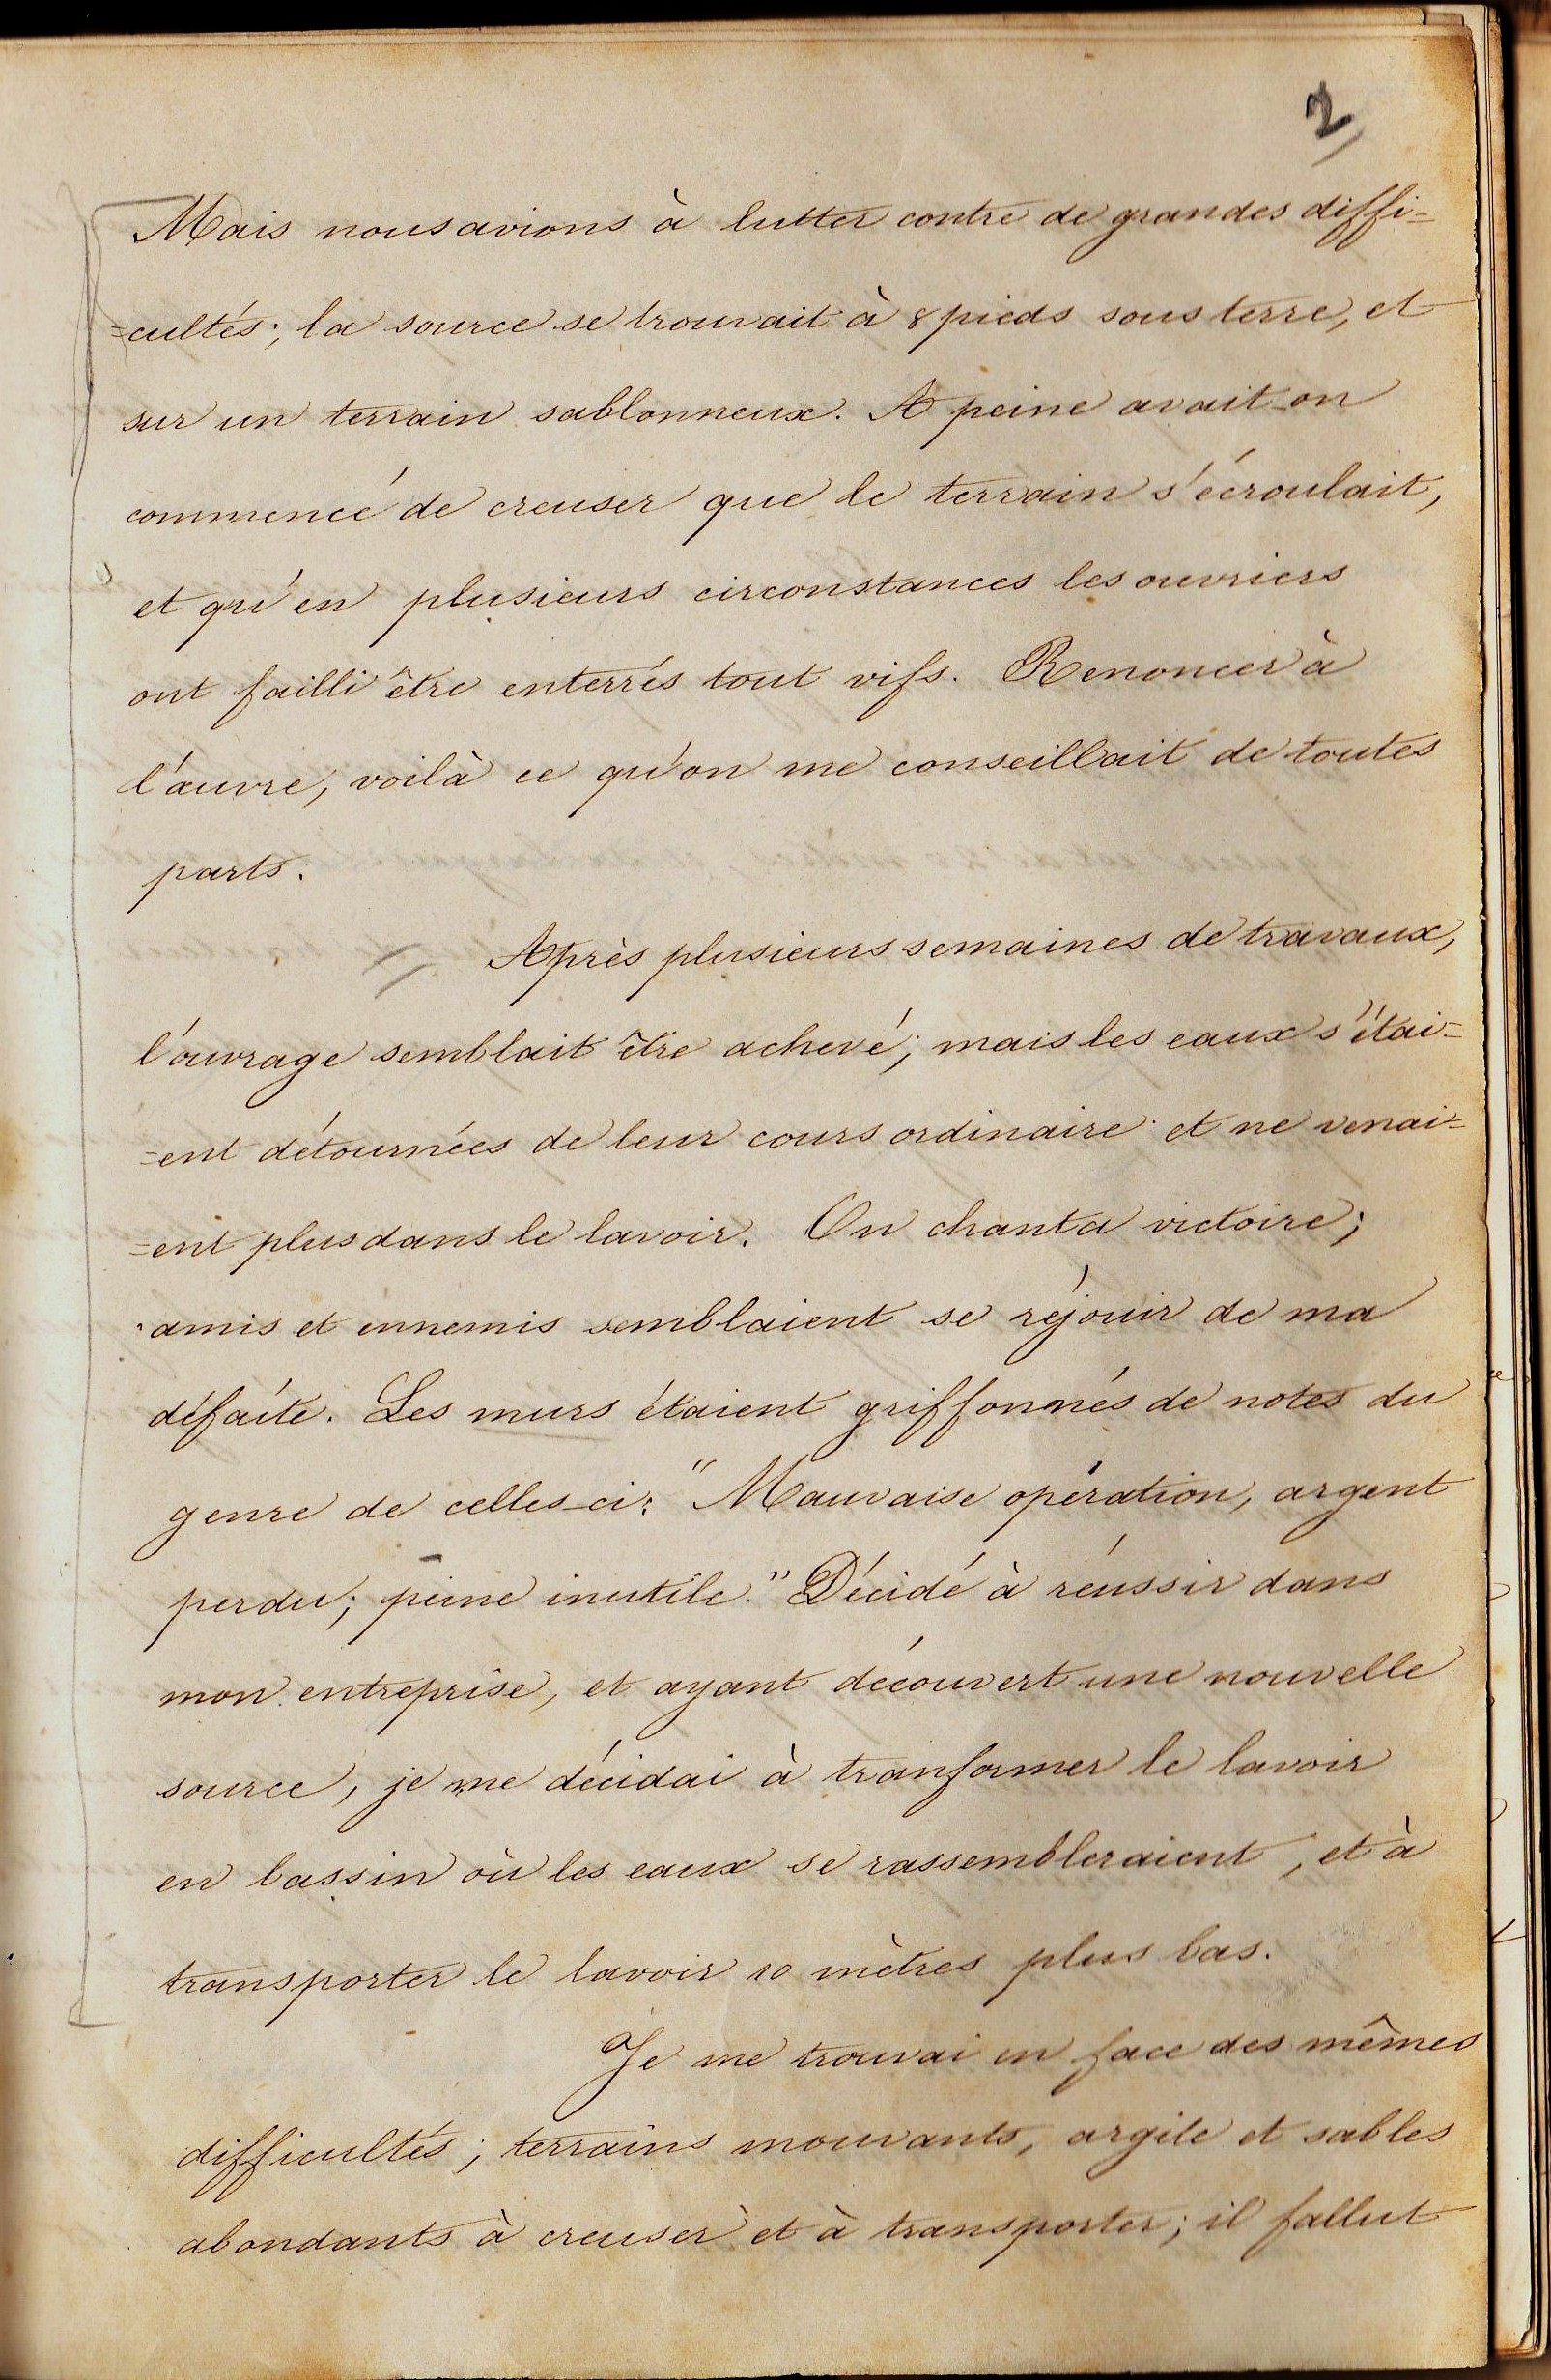 2
Mais nous avions à lutter contre de grandes diffi=
=cultés; la source se trouvait à 8 pieds sous terre, et
sur un terrain sablonneux. A peine avait-on
commencé de creuser que le terrain s'écroulait,
et qu'en plusieurs circonstances les ouvriers
ont failli être enterrés tout vifs. Renoncer à
l'œuvre, voilà ce qu'on me conseillait de toutes
parts.
Après plusieurs semaines de travaux,
l'ouvrage semblait être achevé; mais les eaux s'étai=
=ent détournées de leur cours ordinaire et ne venai=
=ent plus dans le lavoir. On chanta victoire;
amis et ennemis semblaient se réjouir de ma
défaite. Les murs étaient griffonnés de notes du
genre de celles-ci: "Mauvaise opération, argent
perdu; peine inutile." Décidé à réussir dans
mon entreprise, et ayant découvert une nouvelle
source, je me décidai à tranformer le lavoir
en bassin où les eaux se rassembleraient, et à
transporter le lavoir 10 mètres plus bas.
Je me trouvai en face des mêmes
difficultés; terrains mouvants, argile et sables
abondants à creuser et à transporter; il fallut